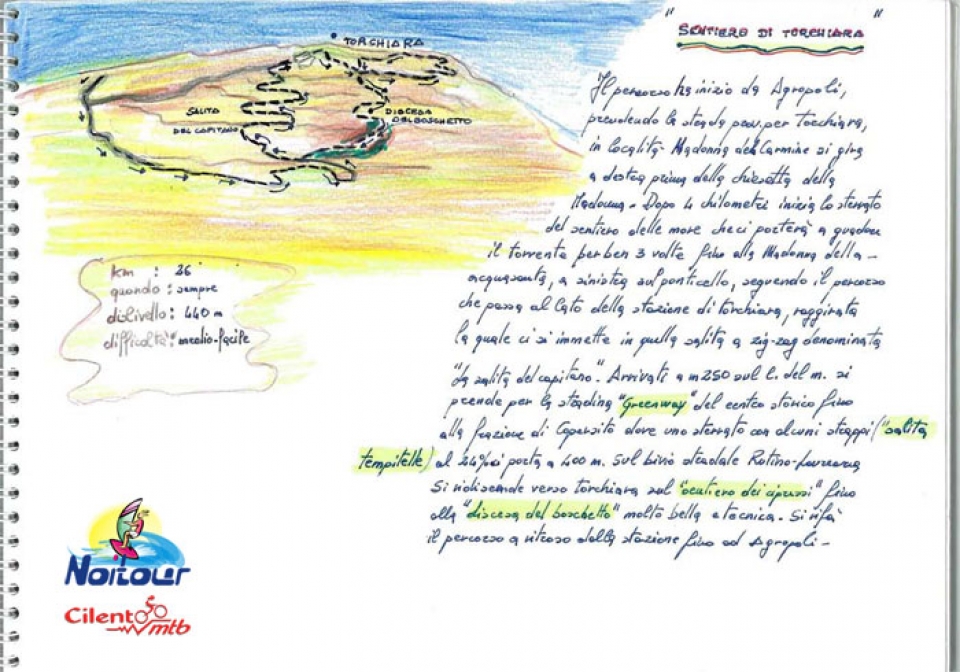 "SENTIERO DI TORCHIARA"
TORCHIARA
SALITA
DEL CAPITANO
DISCESA
DEL BOSCHETTO
Il percorso ha inizio da Agropoli,
prendendo la strada prov. per Torchiara,
in località Madonna del Carmine si gira
a destra prima della chiesetta della
Madonna - Dopo 4 chilometri inizia lo sterrato
del sentiero delle more che ci porterà a guadare
il torrente per ben 3 volte fino alla Madonna della -
acquasanta, a sinistra sul ponticello, seguendo il percorso
che passa al lato della stazione di Torchiara, raggirata
la quale ci si immette in quella salita a zig-zag denominata
"La salita del capitano". Arrivati a m 250 sul l. del m. si
prende per la stradina "Greenway" del centro storico fino
alla frazione di Copersito dove uno sterrato con alcuni strappi ("salita
tempitelle) al 24% ci porta a 400 m. sul bivio stradale Rutino-Laureana
Si ridiscende verso torchiara sul "sentiero dei cipressi" fino
alla "discesa del boschetto" molto bella e tecnica. Si rifà
il percorso a ritroso dalla stazione fino ad Agropoli -
km : 26
quando : sempre
dislivello : 440 m
difficoltà : medio-facile
Noitour
Cilento
mtb